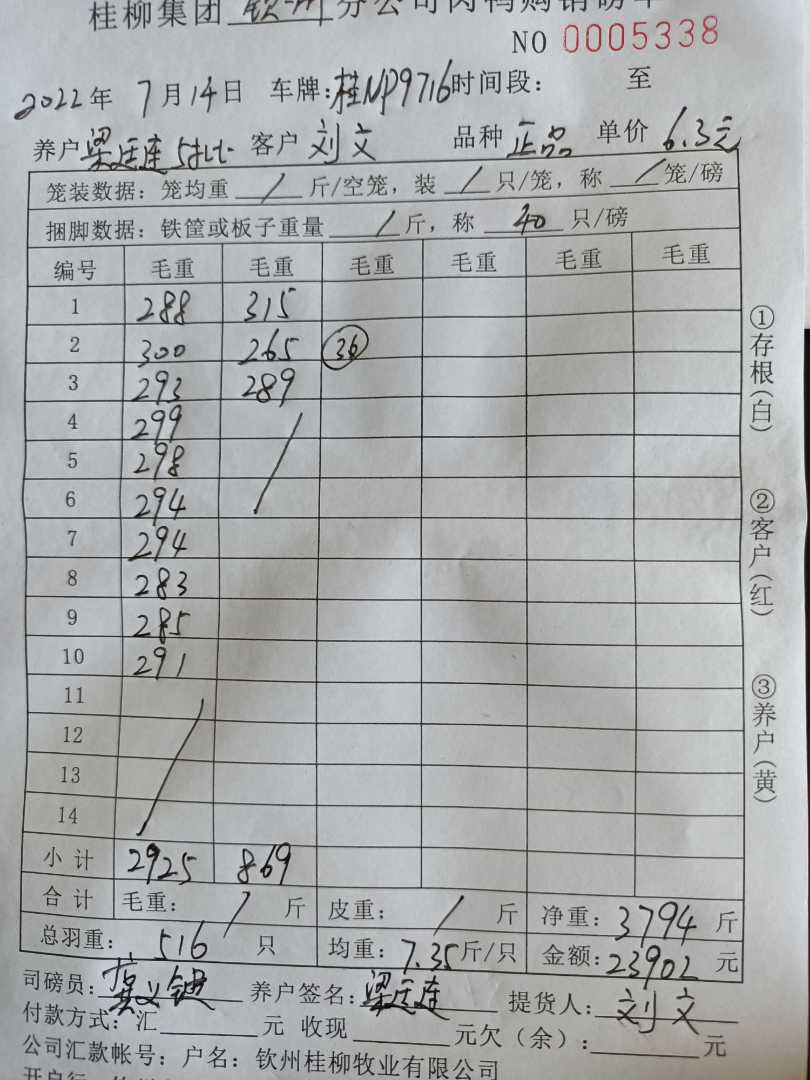 桂柳集团 钦州 分公司肉鸭购销磅单
NO 0005338
2022年 7月14日 车牌:桂NP9716时间段: 至
养户 梁廷连 客户 刘文 品种 正品 单价 6.3元
笼装数据: 笼均重 / 斤/空笼, 装 / 只/笼, 称 / 笼/磅
捆脚数据: 铁筐或板子重量 / 斤, 称 40 只/磅
编号 毛重 毛重 毛重 毛重 毛重 毛重
1 288 315
2 300 265 36
3 293 289
4 299 /
5 298
6 294
7 294
8 283
9 285
10 291
11 /
12
13
14
小计 2925 869
合计 毛重: / 斤 皮重: / 斤 净重: 3794 斤
总羽重: 516 只 均重: 7.35斤/只 金额: 23902 元
司磅员: 养户签名: 梁廷连 提货人: 刘文
付款方式: 汇 元 收现 元欠(余): 元
公司汇款帐号: 户名: 钦州桂柳牧业有限公司
开户行
①存根(白)
②客户(红)
③养户(黄)